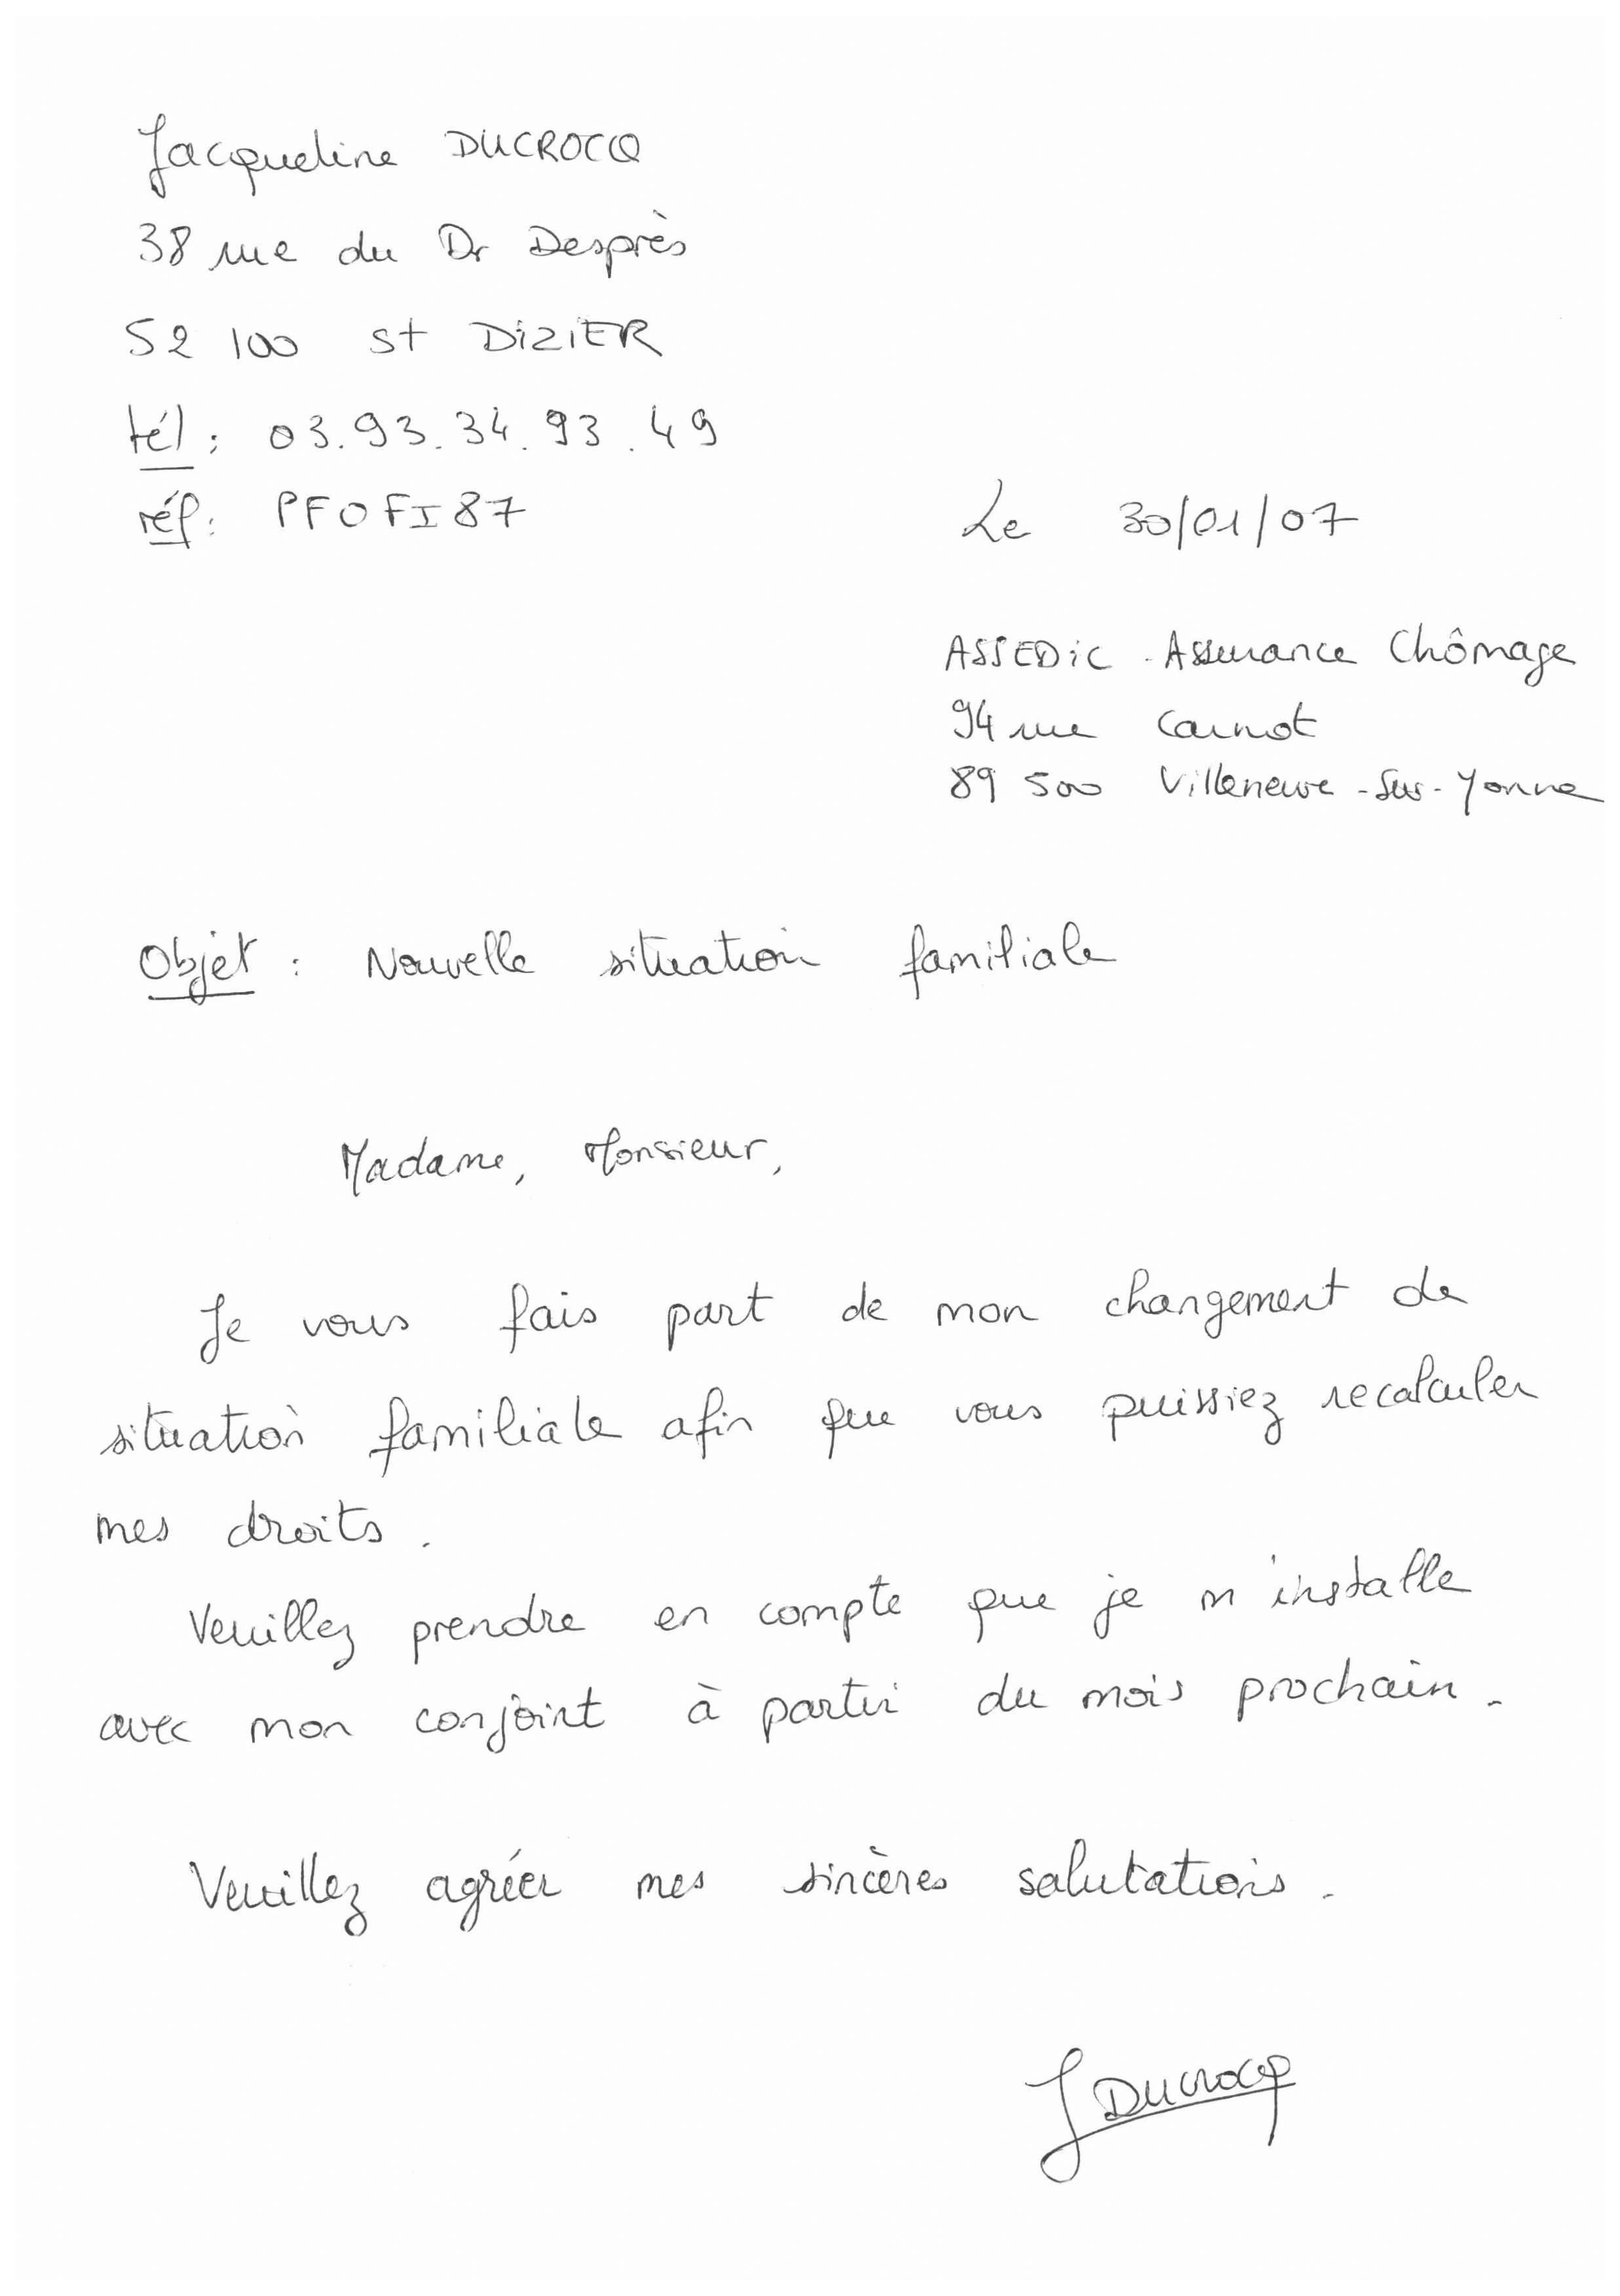 Jacqueline DUCROCQ
38 rue du Dr Desprès
52 100 St DIZIER
tél : 03.93.34.93.49
réf : PFOFI87
Le 30/01/07
ASSEDIC - Assurance Chômage
94 rue Carnot
89 500 Villeneuve-sur-Yonne
Objet : Nouvelle situation familiale
Madame, Monsieur,
Je vous fais part de mon changement de
situation familiale afin que vous puissiez recalculer
mes droits.
Veuillez prendre en compte que je m'installe
avec mon conjoint à partir du mois prochain.
Veuillez agréer mes sincères salutations.
J Ducrocq